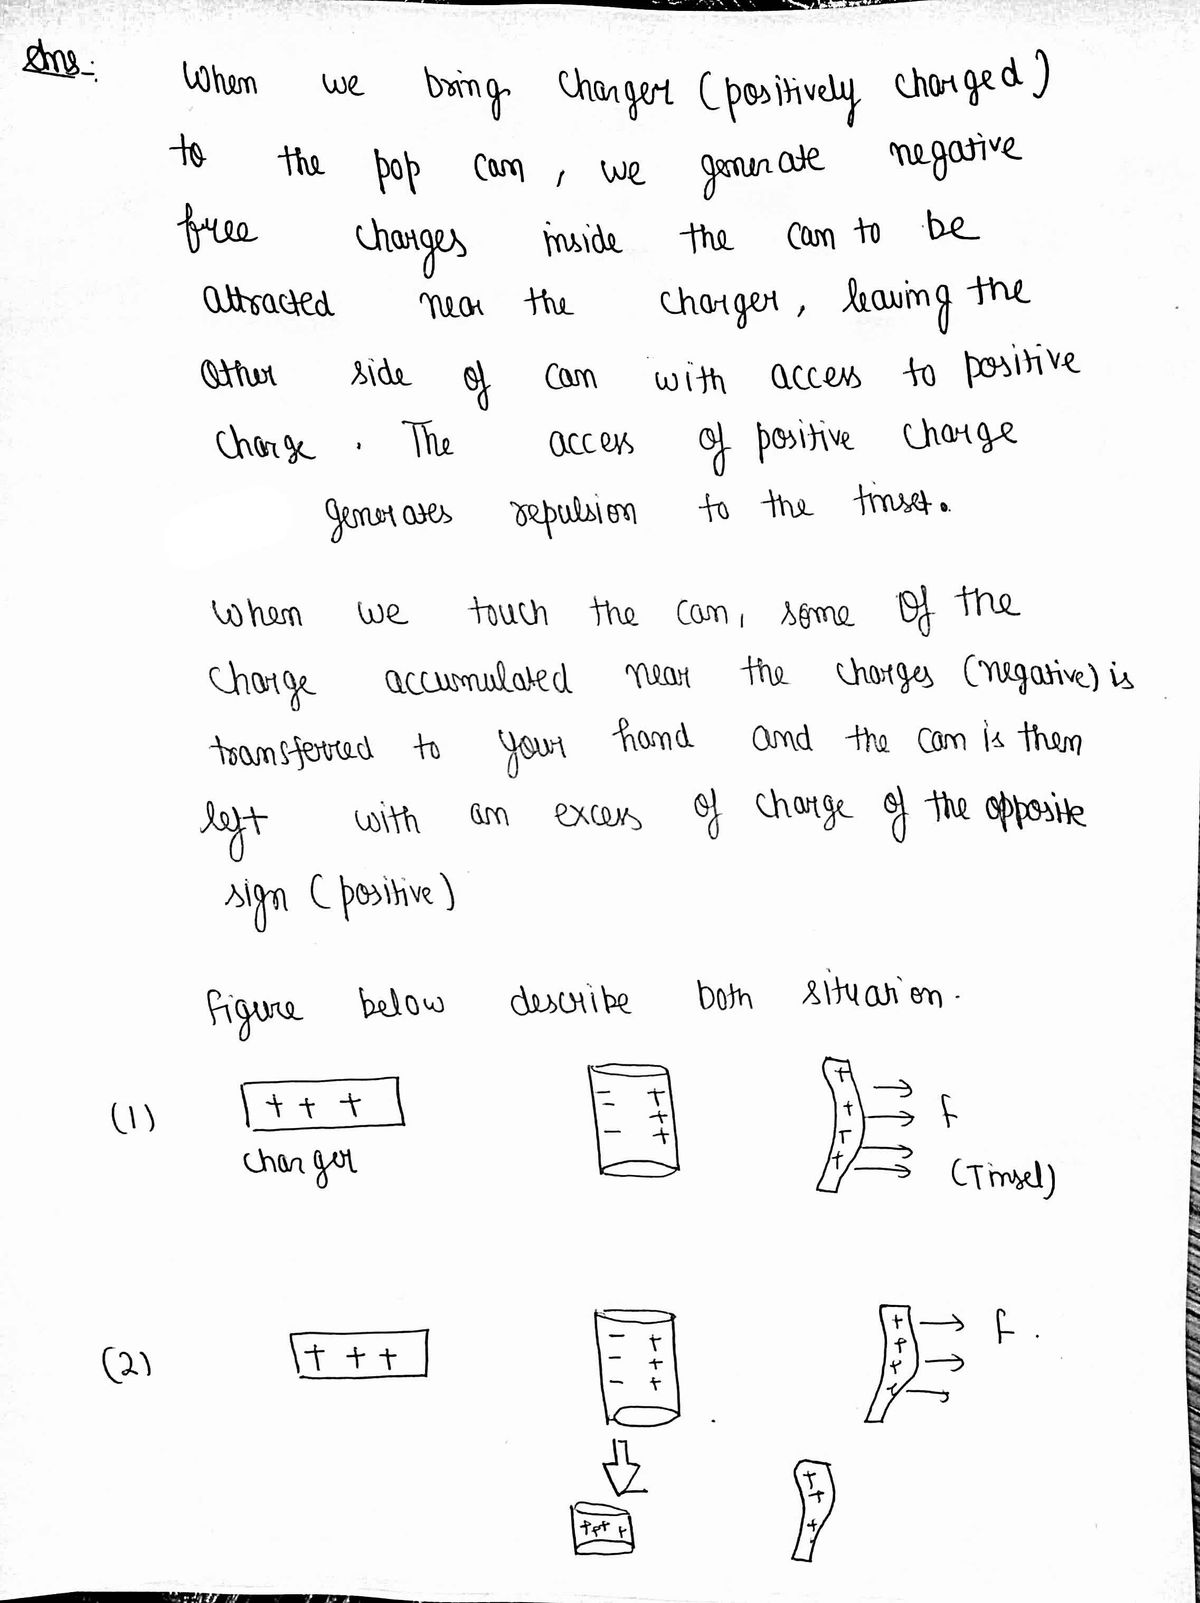 Ans:-
When we bring charger (positively charged)
to the pop can, we generate negative
free charges inside the can to be
attracted near the charger, leaving the
other side of can with access to positive
charge. The access of positive charge
generates repulsion to the tinset.
When we touch the can, some of the
charge accumulated near the charges (negative) is
transferred to your hand and the can is then
left with an excess of charge of the opposite
sign (positive)
Figure below describe both situation.
(1) + + + - - - + + + + + + + F
charger (Tinsel)
(2) + + + - - - + + + + + + + F.
+ + + + + + +